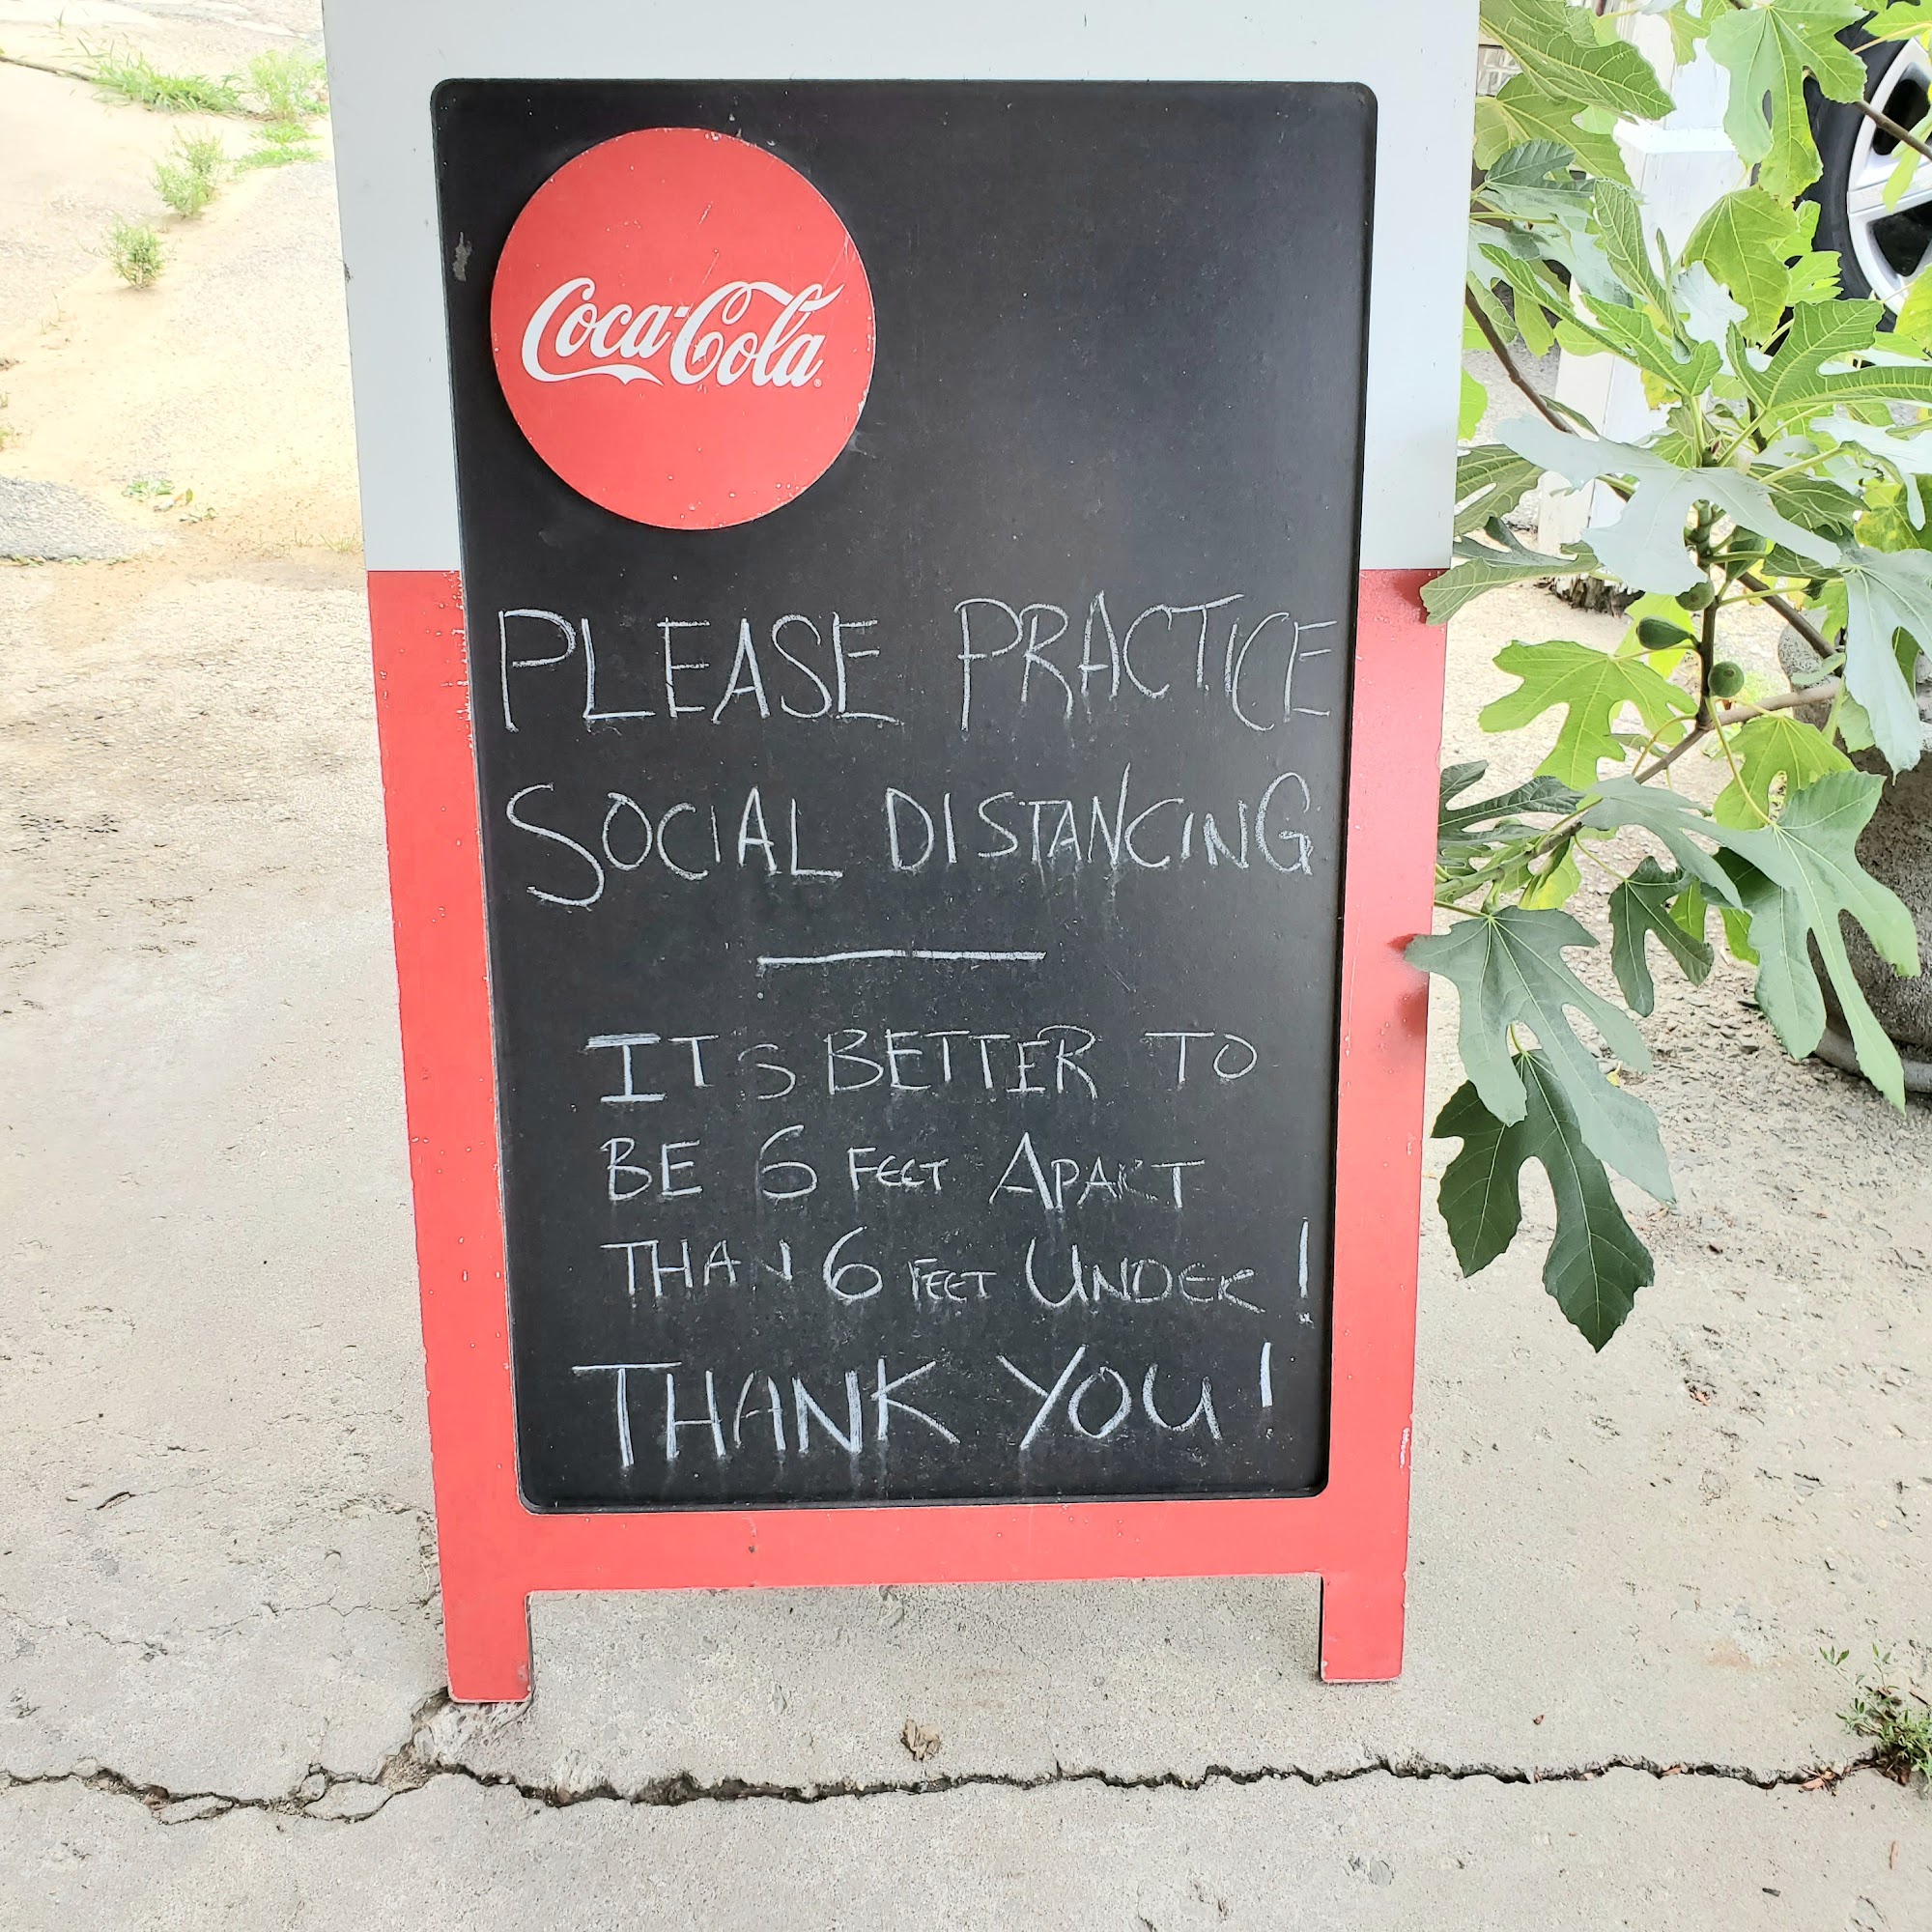 Coca-Cola
PLEASE PRACTICE
SOCIAL DISTANCING
ITS BETTER TO
BE 6 FEET APART
THAN 6 FEET UNDER!
THANK YOU!